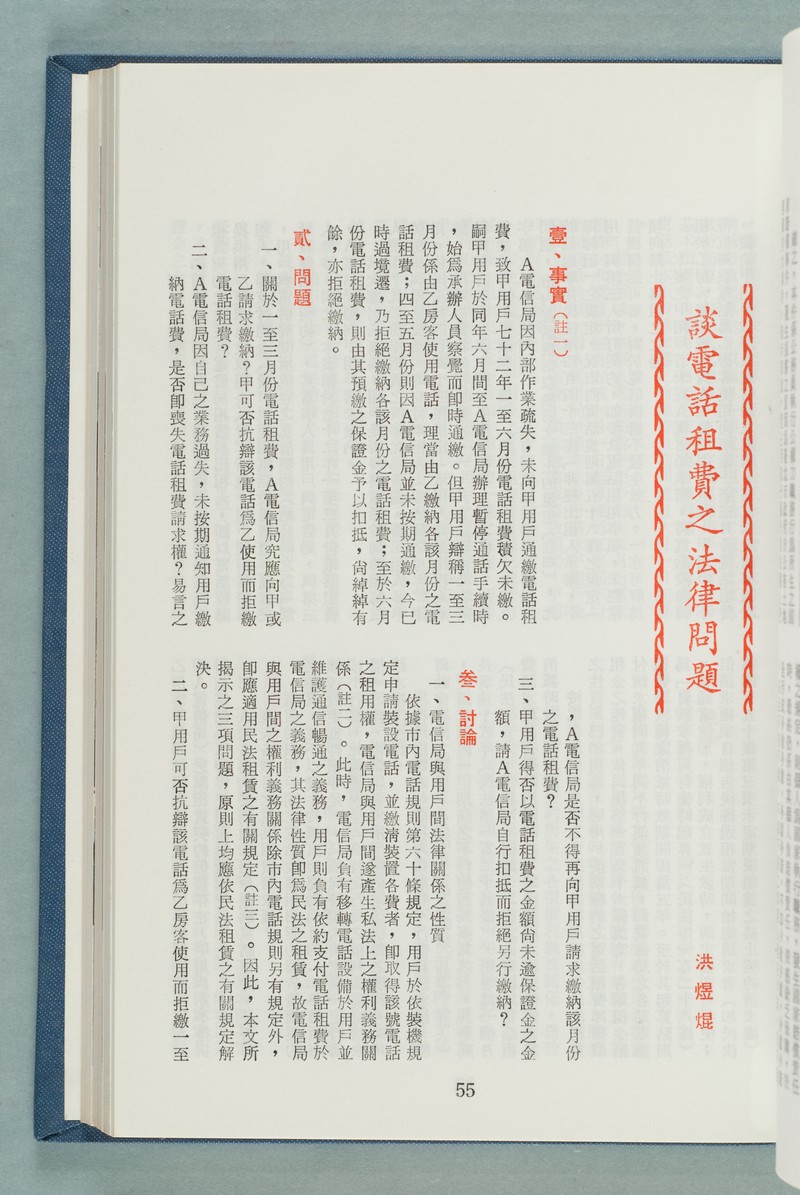 談電話租費之法律問題
洪煜焜
壹、事實（註一）
A電信局因內部作業疏失，未向甲用戶通繳電話租
費，致甲用戶七十二年一至六月份電話租費積欠未繳。
嗣甲用戶於同年六月間至A電信局辦理暫停通話手續時
，始爲承辦人員察覺而卽時通繳。但甲用戶辯稱一至三
月份係由乙房客使用電話，理當由乙繳納各該月份之電
話租費；四至五月份則因A電信局並未按期通繳，今已
時過境遷，乃拒絕繳納各該月份之電話租費；至於六月
份電話租費，則由其預繳之保證金予以扣抵，尙綽綽有
餘，亦拒絕繳納。
貳、問題
一、關於一至三月份電話租費，A電信局究應向甲或
乙請求繳納？甲可否抗辯該電話爲乙使用而拒繳
電話租費？
二、A電信局因自己之業務過失，未按期通知用戶繳
納電話費，是否卽喪失電話租費請求權？易言之
，A電信局是否不得再向甲用戶請求繳納該月份
之電話租費？
三、甲用戶得否以電話租費之金額尙未逾保證金之金
額，請A電信局自行扣抵而拒絕另行繳納？
叁、討論
一、電信局與用戶間法律關係之性質
依據市內電話規則第六十條規定，用戶於依裝機規
定申請裝設電話，並繳淸裝置各費者，卽取得該號電話
之租用權，電信局與用戶間遂產生私法上之權利義務關
係（註二）。此時，電信局負有移轉電話設備於用戶並
維護通信暢通之義務，用戶則負有依約支付電話租費於
電信局之義務，其法律性質卽爲民法之租賃，故電信局
與用戶間之權利義務關係除市內電話規則另有規定外，
卽應適用民法租賃之有關規定（註三）。因此，本文所
揭示之三項問題，原則上均應依民法租賃之有關規定解
決。
二、甲用戶可否抗辯該電話爲乙房客使用而拒繳一至
55